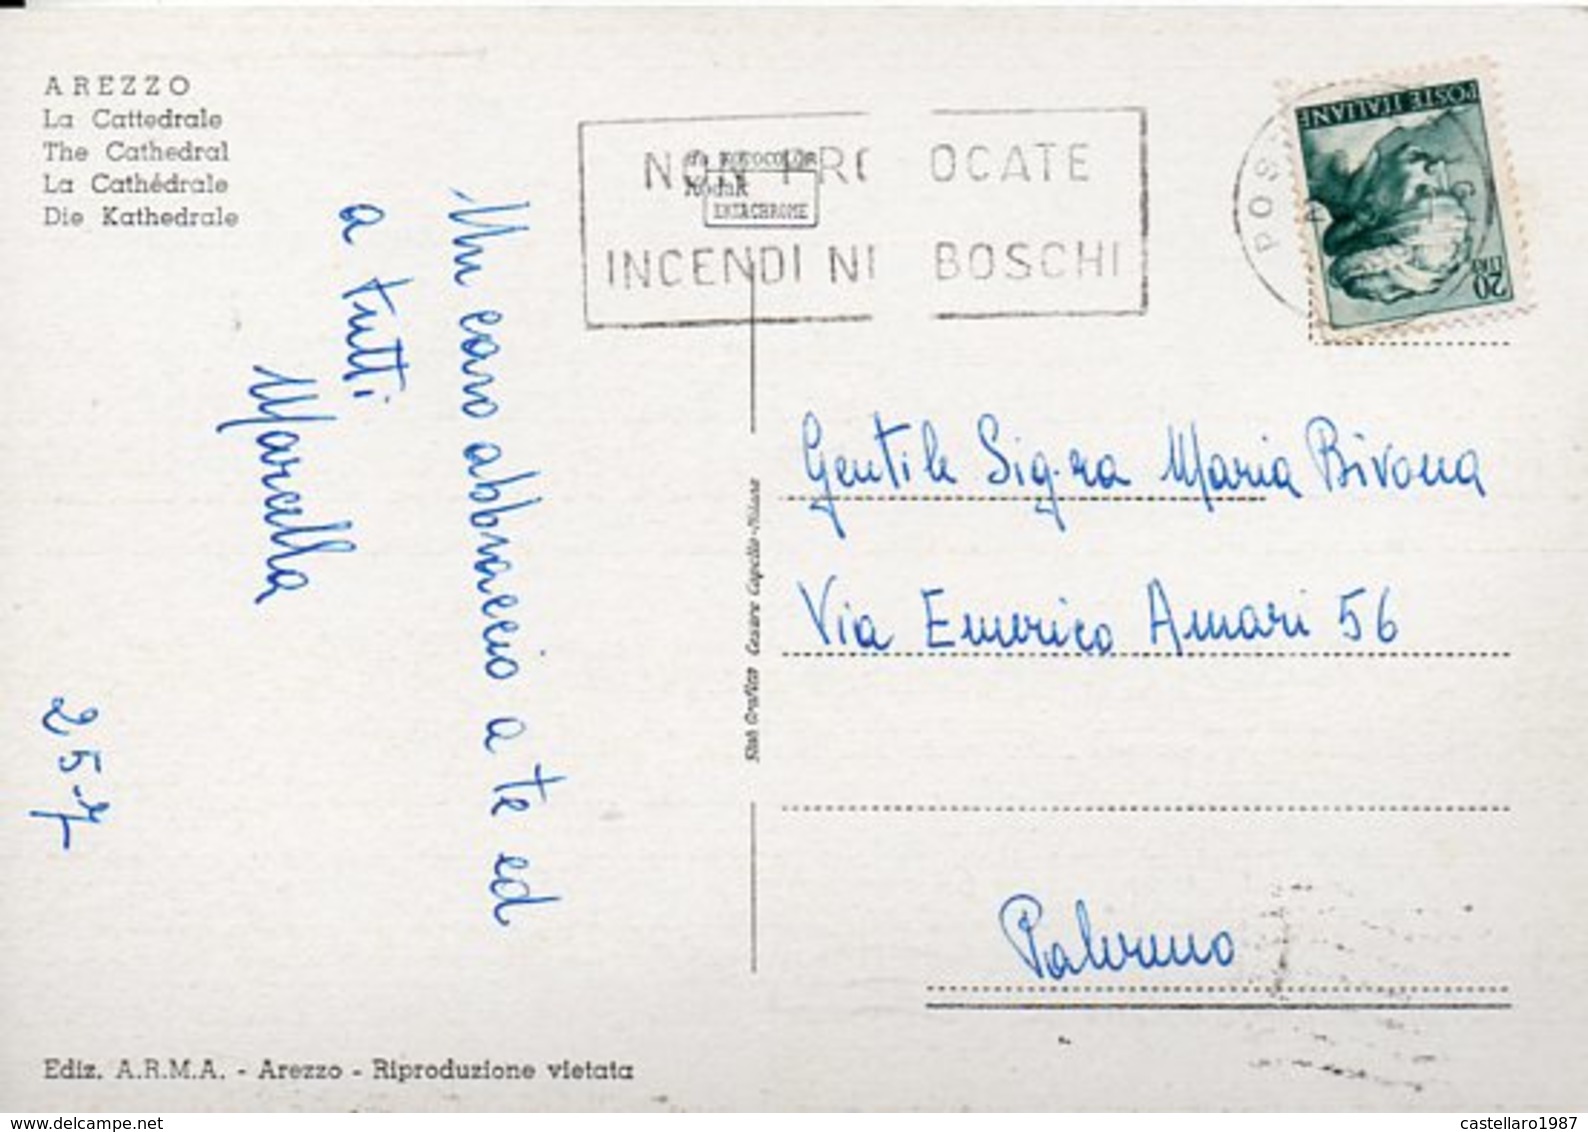 AREZZO
La Cattedrale
The Cathedral
La Cathédrale
Die Kathedrale
Un caro abbraccio a te ed
a tutti
Marcella
25-7
NON PRO OCATE
INCENDI N BOSCHI
da FOTOCOLOR
Kodak
EKTACHROME
POS
POSTE ITALIANE
20
LIRE
Gentile Sig.ra Maria Bivona
Via Emerico Amari 56
Palermo
Stab Grafico Cesare Capello - Milano
Ediz. A.R.M.A. - Arezzo - Riproduzione vietata
delcampe.net
castellaro1987